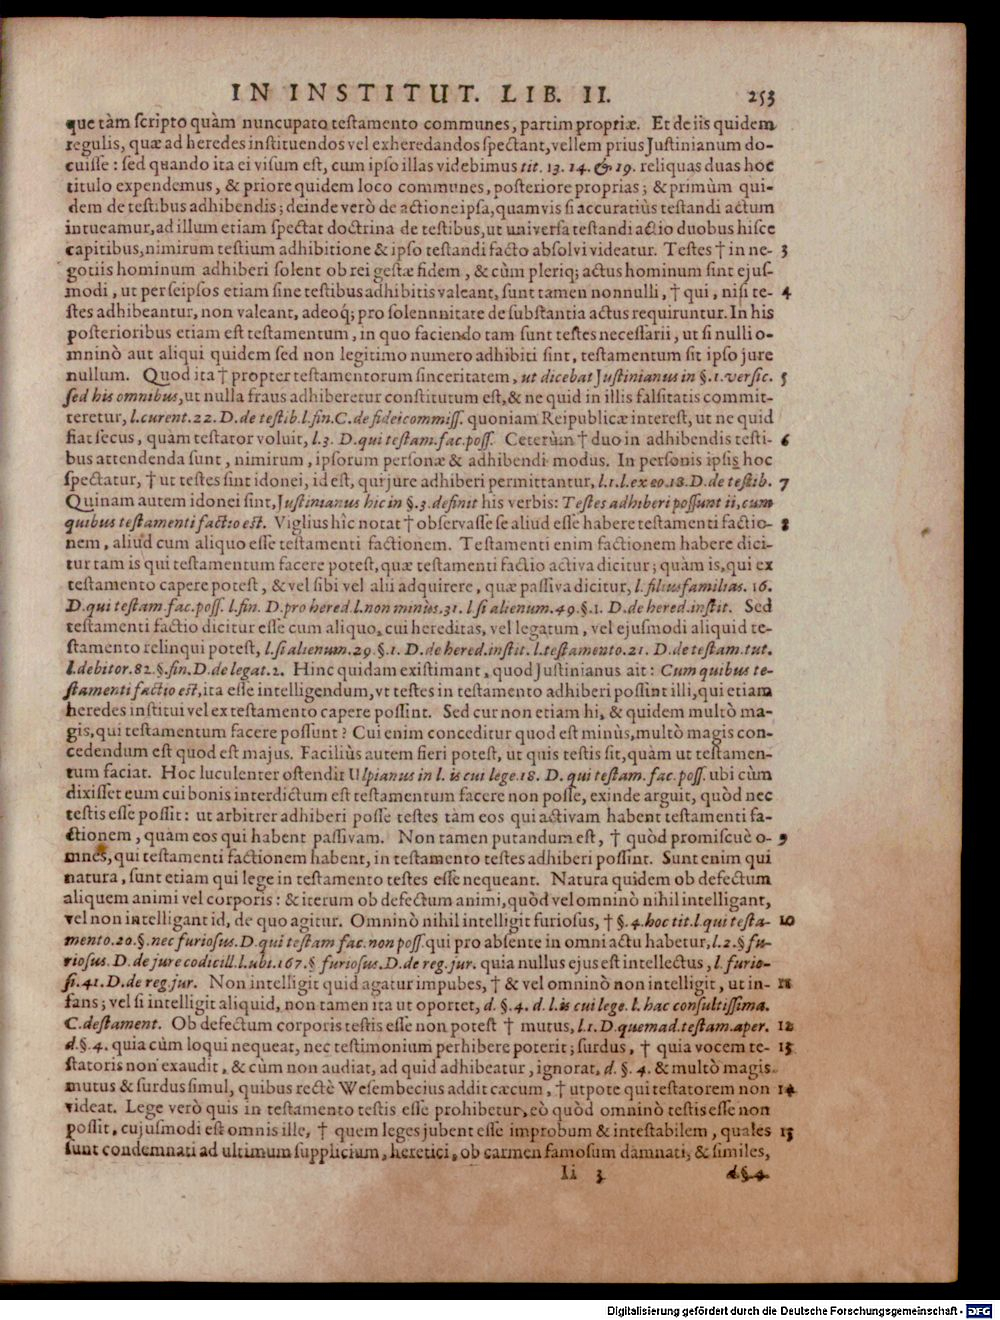 IN INSTITUT. LIB. II. 253
que tàm ſcripto quàm nuncupato teſtamento communes, partim propriæ. Et de iis quidem
regulis, quæ ad heredes inſtituendos vel exheredandos ſpectant, vellem prius Juſtinianum do-
cuiſſe: ſed quando ita ei viſum eſt, cum ipſo illas videbimus tit. 13. 14. & 19. reliquas duas hoc
titulo expendemus, & priore quidem loco communes, poſteriore proprias; & primùm qui-
dem de teſtibus adhibendis; deinde verò de actione ipſa, quamvis ſi accuratiùs teſtandi actum
intueamur, ad illum etiam ſpectat doctrina de teſtibus, ut univerſa teſtandi actio duobus hiſce
capitibus, nimirum teſtium adhibitione & ipſo teſtandi facto abſolvi videatur. Teſtes † in ne- 3
gotiis hominum adhiberi ſolent ob rei geſtæ fidem, & cùm pleriq; actus hominum ſint ejuſ-
modi, ut per ſeipſos etiam ſine teſtibus adhibitis valeant, ſunt tamen nonnulli, † qui, niſi te- 4
ſtes adhibeantur, non valeant, adeoq; pro ſolennnitate de ſubſtantia actus requiruntur. In his
poſterioribus etiam eſt teſtamentum, in quo faciendo tam ſunt teſtes neceſſarii, ut ſi nulli o-
mninò aut aliqui quidem ſed non legitimo numero adhibiti ſint, teſtamentum ſit ipſo jure
nullum. Quod ita † propter teſtamentorum ſinceritatem, ut dicebat Juſtinianus in §. 1. verſic. 5
ſed his omnibus, ut nulla fraus adhiberetur conſtitutum eſt, & ne quid in illis falſitatis commit-
teretur, l. curent. 22. D. de teſtib. l. fin. C. de fideicommiſſ. quoniam Reipublicæ intereſt, ut ne quid
fiat ſecus, quàm teſtator voluit, l. 3. D. qui teſtam. fac. poſſ. Ceterùm † duo in adhibendis teſti- 6
bus attendenda ſunt, nimirum, ipſorum perſonæ & adhibendi modus. In perſonis ipſis hoc
ſpectatur, † ut teſtes ſint idonei, id eſt, qui jure adhiberi permittantur, l. 1. l. ex eo. 18. D. de teſtib. 7
Quinam autem idonei ſint, Juſtinianus hic in §. 3. definit his verbis: Teſtes adhiberi poſſunt ii, cum
quibus teſtamenti factio eſt. Viglius hîc notat † obſervaſſe ſe aliud eſſe habere teſtamenti factio- 8
nem, aliud cum aliquo eſſe teſtamenti factionem. Teſtamenti enim factionem habere dici-
tur tam is qui teſtamentum facere poteſt, quæ teſtamenti factio activa dicitur; quàm is, qui ex
teſtamento capere poteſt, & vel ſibi vel alii adquirere, quæ paſſiva dicitur, l. filiusfamilias. 16.
D. qui teſtam. fac. poſſ. l. fin. D. pro hered. l. non minùs. 31. l. ſi alienum. 49. §. 1. D. de hered. inſtit. Sed
teſtamenti factio dicitur eſſe cum aliquo, cui hereditas, vel legatum, vel ejuſmodi aliquid te-
ſtamento relinqui poteſt, l. ſi alienum. 29. §. 1. D. de hered. inſtit. l. teſtamento. 21. D. de teſtam. tut.
l. debitor. 82. §. fin. D. de legat. 2. Hinc quidam exiſtimant, quod Juſtinianus ait: Cum quibus te-
ſtamenti factio eſt, ita eſſe intelligendum, vt teſtes in teſtamento adhiberi poſſint illi, qui etiam
heredes inſtitui vel ex teſtamento capere poſſint. Sed cur non etiam hi, & quidem multò ma-
gis, qui teſtamentum facere poſſunt? Cui enim conceditur quod eſt minùs, multò magis con-
cedendum eſt quod eſt majus. Faciliùs autem fieri poteſt, ut quis teſtis ſit, quàm ut teſtamen-
tum faciat. Hoc luculenter oſtendit Ulpianus in l. is cui lege. 18. D. qui teſtam. fac. poſſ. ubi cùm
dixiſſet eum cui bonis interdictum eſt teſtamentum facere non poſſe, exinde arguit, quòd nec
teſtis eſſe poſſit: ut arbitrer adhiberi poſſe teſtes tàm eos qui activam habent teſtamenti fa-
ctionem, quàm eos qui habent paſſivam. Non tamen putandum eſt, † quòd promiſcuè o- 9
mnes, qui teſtamenti factionem habent, in teſtamento teſtes adhiberi poſſint. Sunt enim qui
natura, ſunt etiam qui lege in teſtamento teſtes eſſe nequeant. Natura quidem ob defectum
aliquem animi vel corporis: & iterum ob defectum animi, quòd vel omninò nihil intelligant,
vel non intelligant id, de quo agitur. Omninò nihil intelligit furioſus, † §. 4. hoc tit. l. qui teſta- 10
mento. 20. §. nec furioſus. D. qui teſtam fac. non poſſ. qui pro abſente in omni actu habetur, l. 2. § fu-
rioſus. D. de jure codicill. l. ubi. 167. § furioſus. D. de reg. jur. quia nullus ejus eſt intellectus, l. furio-
ſi. 41. D. de reg. jur. Non intelligit quid agatur impubes, † & vel omninò non intelligit, ut in- 11
fans; vel ſi intelligit aliquid, non tamen ita ut oportet, d. §. 4. d. l. is cui lege. l. hac conſultiſſima.
C. de ſtament. Ob defectum corporis teſtis eſſe non poteſt † mutus, l. 1. D. quemad. teſtam. aper. 12
d. §. 4. quia cùm loqui nequeat, nec teſtimonium perhibere poterit; ſurdus, † quia vocem te- 13
ſtatoris non exaudit, & cùm non audiat, ad quid adhibeatur, ignorat, d. §. 4. & multò magis
mutus & ſurdus ſimul, quibus rectè Weſembecius addit cæcum, † utpote qui teſtatorem non 14
videat. Lege verò quis in teſtamento teſtis eſſe prohibetur, eò quòd omninò teſtis eſſe non
poſſit, cujuſmodi eſt omnis ille, † quem leges jubent eſſe improbum & inteſtabilem, quales 15
ſunt condemnati ad ultimum ſupplicium, heretici, ob carmen famoſum damnati, & ſimiles,
Ii 3 d. §. 4.
Digitalisierung gefördert durch die Deutsche Forschungsgemeinschaft - DFG